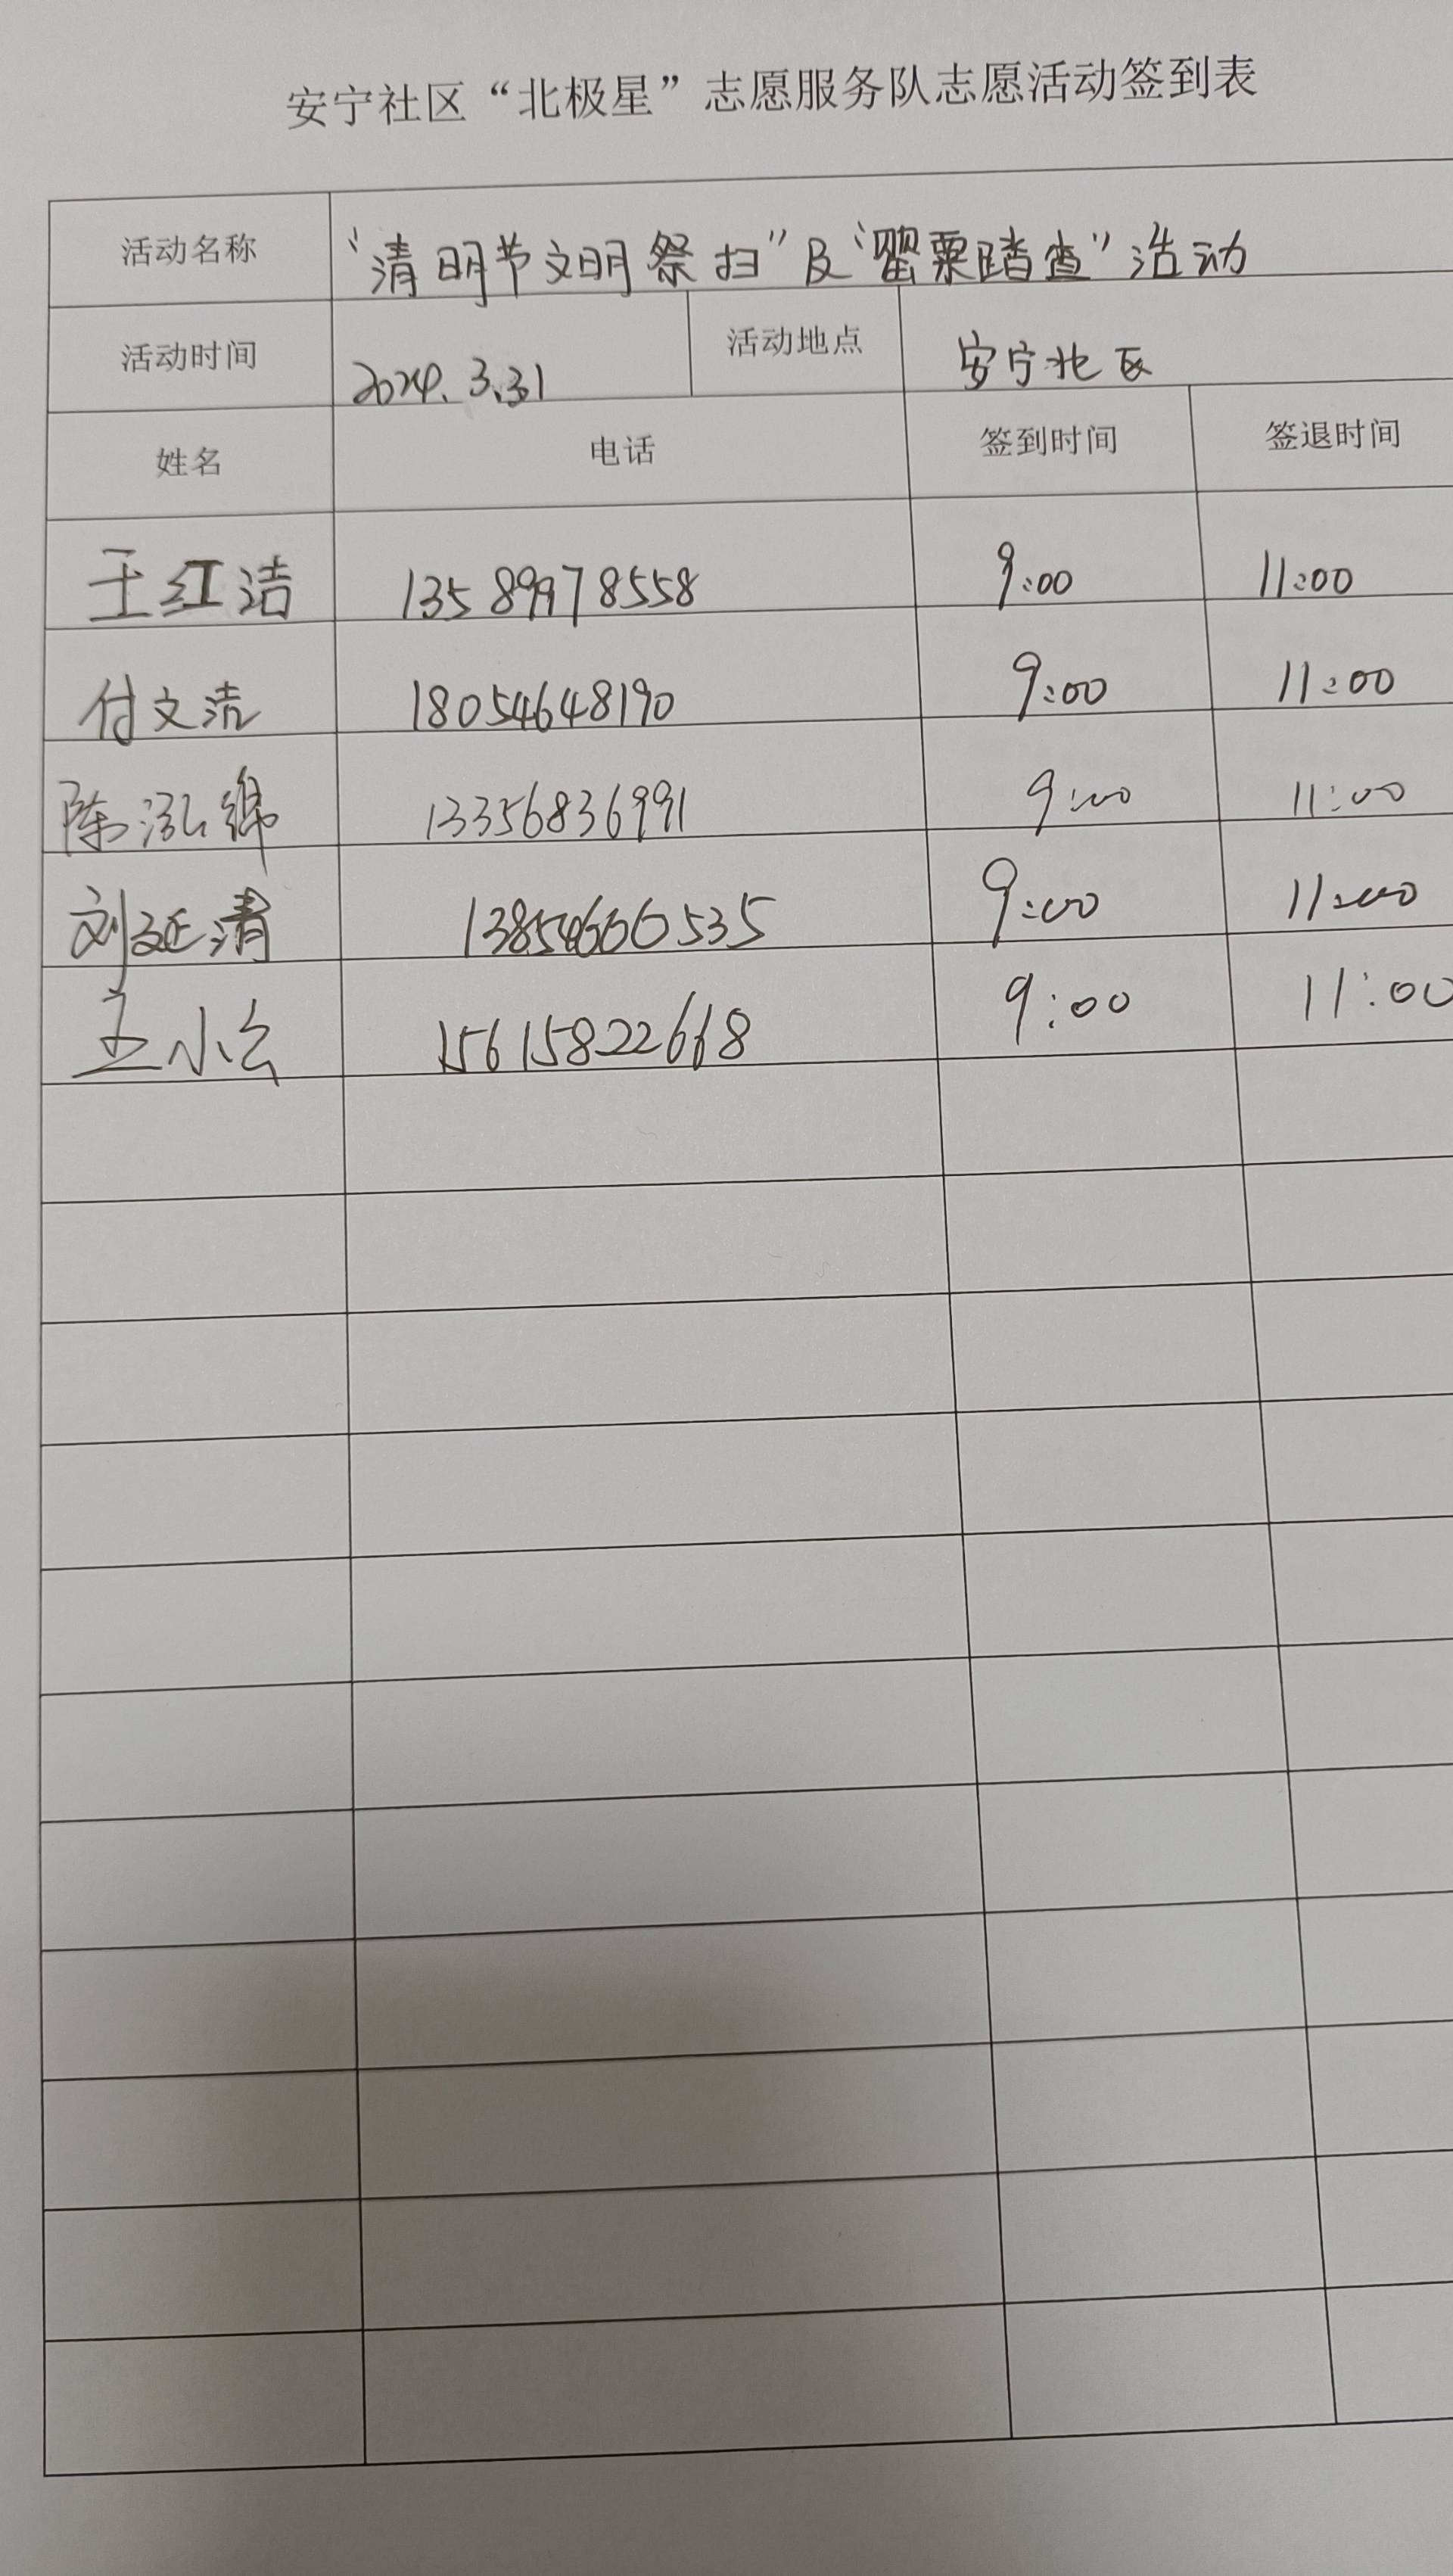 安宁社区“北极星”志愿服务队志愿活动签到表
活动名称 “清明节文明祭扫”及“罂粟踏查”活动
活动时间 2024.3.31 活动地点 安宁北区
姓名 电话 签到时间 签退时间
王红洁 13589978558 9:00 11:00
付文洁 18054648190 9:00 11:00
陈泓锦 13356836991 9:00 11:00
刘延清 13854660535 9:00 11:00
王小云 15615822668 9:00 11:00